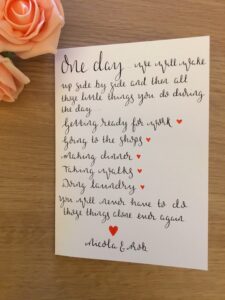 One day we will wake
up side by side and then all
those little things you do during
the day
Getting ready for work
Going to the shops
Making dinner
Taking walks
Doing laundry
You will never have to do
those things alone ever again
Nicola & Rob